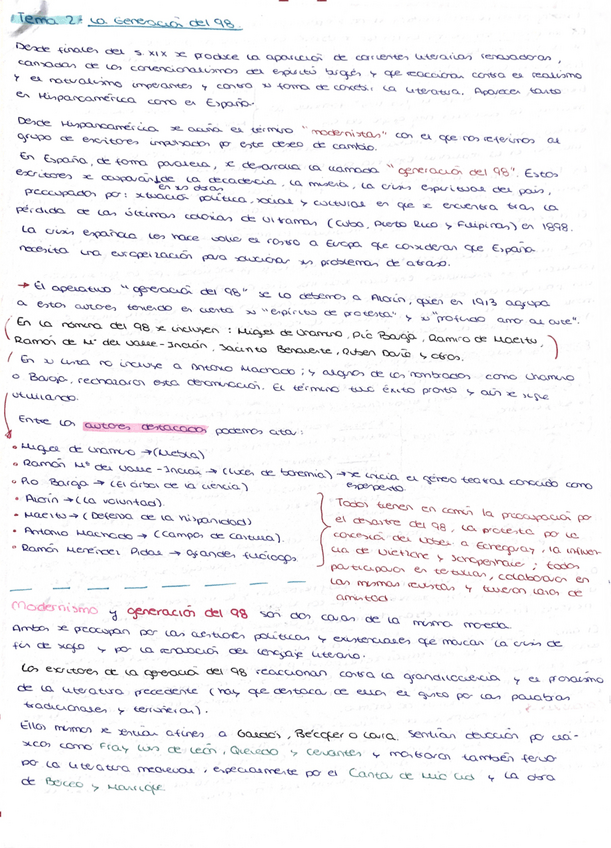 Tema 2: La Generación del 98.
Desde finales del s. XIX se produce la aparición de corrientes literarias renovadoras,
cansadas de los convencionalismos del espíritu burgés y que reaccionan contra el realismo
y el naturalismo imperantes y contra su forma de concebir la literatura. Aparece tanto
en Hispanoamérica como en España.
Desde Hispanoamérica se acuña el término "modernistas" con el que nos referimos al
grupo de escritores impulsados por este deseo de cambio.
En España, de forma paralela, se desarrolla la llamada "generación del 98". Estos
escritores se ocuparán de la decadencia, la miseria, la crisis espiritual del país,
en sus obras
preocupados por: situación política, social y cultural en que se encuentra tras la
pérdida de las últimas colonias de ultramar (Cuba, Puerto Rico y Filipinas) en 1898.
La crisis española les hace volver el rostro a Europa que consideran que España
necesita una europeización para solucionar sus problemas de atraso.
→ El apelativo "generación del 98" se lo debemos a Azorín, quien en 1913 agrupa
a estos autores teniendo en cuenta su "espíritu de protesta" y su "profundo amor al arte".
En la nómina del 98 se incluyen: Miguel de Unamuno, Pío Baroja, Ramiro de Maeztu,
Ramón de Mª del Valle-Inclán, Jacinto Benavente, Rubén Darío y otros.
En su lista no incluye a Antonio Machado; y algunos de los nombrados como Unamuno
o Baroja, rechazaron esta denominación. El término tuvo éxito pronto y aún se sigue
utilizando.
Entre los autores destacados podemos citar:
• Miguel de Unamuno → (Niebla)
• Ramón Mª del Valle-Inclán → (Luces de bohemia) → se inicia el género teatral conocido como
esperpento.
• Pío Baroja → (El árbol de la ciencia)
• Azorín → (La voluntad)
• Maeztu → (Defensa de la hispanidad)
• Antonio Machado → (Campos de Castilla)
• Ramón Menéndez Pidal → Grandes filólogos
Todos tienen en común la preocupación por
el desastre del 98, la protesta por la
concesión del Nobel a Echegaray, la influen-
cia de Nietzsche y Schopenhauer; todos
participaron en tertulias, colaboraron en
las mismas revistas y tuvieron lazos de
amistad.
Modernismo y generación del 98 son dos caras de la misma moneda.
Ambos se preocupan por las actitudes políticas y existenciales que marcan la crisis de
fin de siglo y por la renovación del lenguaje literario.
Los escritores de la generación del 98 reaccionan contra la grandilocuencia y el prosaísmo
de la literatura precedente (hay que destacar de ellos el gusto por las palabras
tradicionales y terruñeras).
Ellos mismos se sentían afines a Galdós, Bécquer o Larra. Sentían devoción por clá-
sicos como Fray Luis de León, Quevedo y Cervantes y mostraron también fervor
por la literatura medieval, especialmente por el Cantar de Mío Cid y la obra
de Berceo y Manrique.